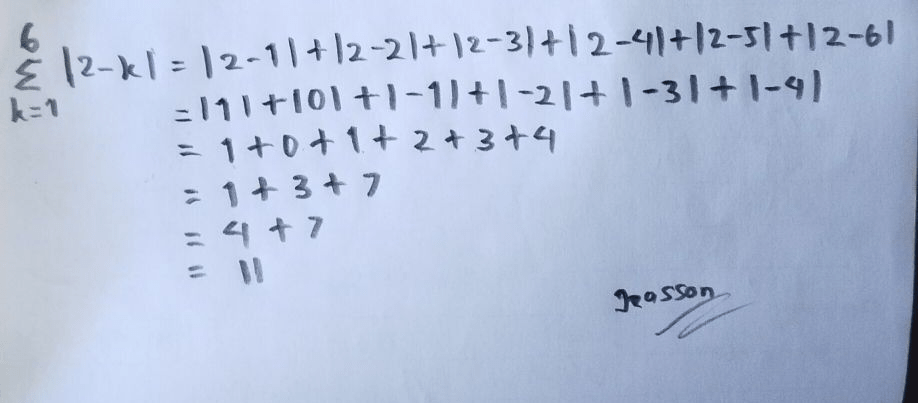 6
Σ |2-k| = |2-1|+|2-2|+|2-3|+|2-4|+|2-5|+|2-6|
k=1
=|1|+|0|+|-1|+|-2|+|-3|+|-4|
= 1+0+1+2+3+4
= 1+3+7
= 4+7
= 11